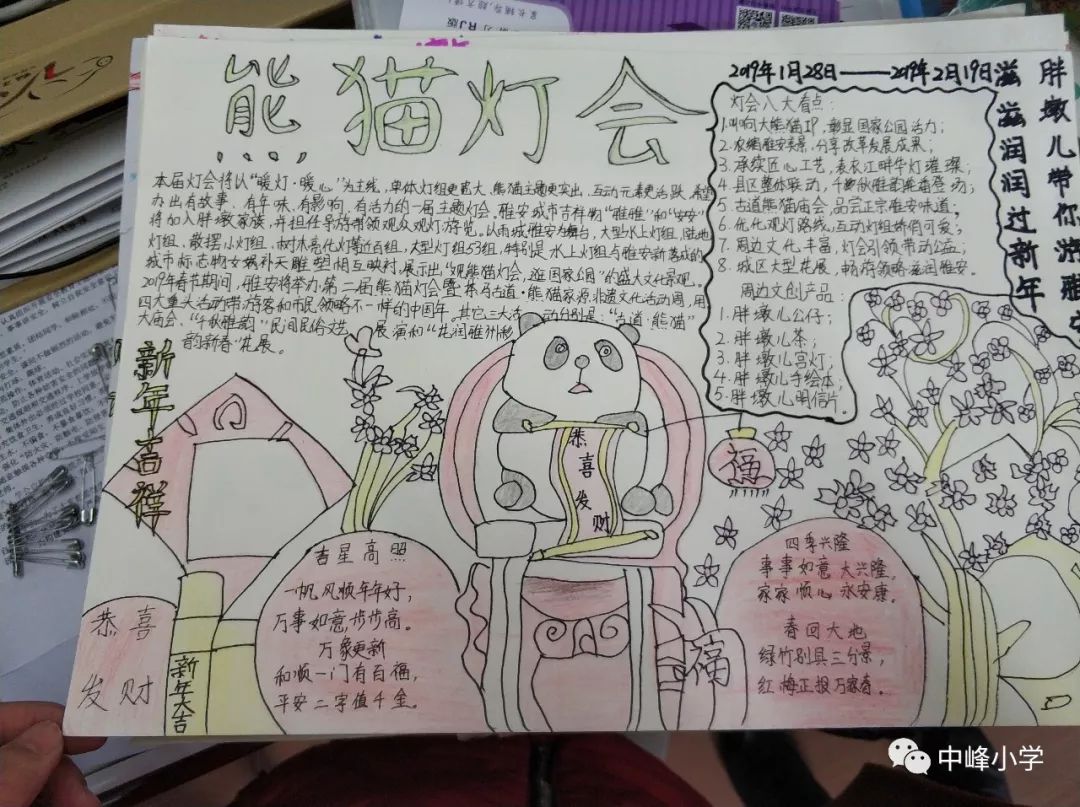 熊猫灯会
2019年1月28日——2019年2月19日
胖墩儿带你游雅安
滋滋润润过新年
本届灯会将以“暖灯·暖心”为主线,单体灯组更高大,熊猫主题更突出,互动元素更活跃,希望
办出有故事、有年味、有影响、有活力的一届主题灯会。雅安城市吉祥物“雅雅”和“安安”
将加入胖墩家族,并担任导游带领观众观灯游览。以雨城雅安为舞台,大型水上灯组、陆地
灯组、散摆小灯组、树木亮化灯等近百组,大型灯组53组,特别是水上灯组与雅安新落成的
城市标志物女娲补天雕塑相互映衬,展示出“观熊猫灯会,逛国家公园”的盛大文化景观。
2019年春节期间,雅安将举办第二届熊猫灯会暨茶马古道·熊猫家源非遗文化活动周,用
四大重大活动带游客和市民领略不一样的中国年。其它三大活动分别是:“古道·熊猫”
大庙会、“千秋雅韵”民间民俗文艺展演和“花润雅州
韵新春”花展。
灯会八大看点:
1.叫响大熊猫IP,彰显国家公园活力;
2.浓缩雅安美景,分享改革发展成果;
3.承续匠心工艺,青衣江畔华灯璀璨;
4.县区整体联动,千秋雅韵轮番登场;
5.古道熊猫庙会,品尝正宗雅安味道;
6.优化观灯路线,互动灯组娇俏可爱;
7.周边文化丰富,灯会引领带动公益;
8.城区大型花展,畅游领略滋润雅安。
周边文创产品:
1.胖墩儿公仔;
2.胖墩儿茶;
3.胖墩儿宫灯;
4.胖墩儿手绘本;
5.胖墩儿明信片。
新年吉祥
恭喜发财
福
吉星高照
一帆风顺年年好,
万事如意步步高。
万象更新
和顺一门有百福,
平安二字值千金。
四季兴隆
事事如意大兴隆,
家家顺心永安康。
春回大地
绿竹别具三分景,
红梅正报万家春。
恭喜
发财
新年大吉
福
中峰小学